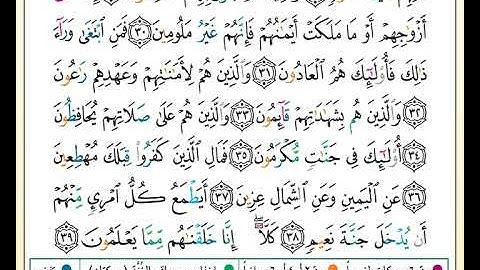 أَزْوَٰجِهِمْ أَوْ مَا مَلَكَتْ أَيْمَٰنُهُمْ فَإِنَّهُمْ غَيْرُ مَلُومِينَ ٣٠ فَمَنِ ٱبْتَغَىٰ وَرَآءَ
ذَٰلِكَ فَأُو۟لَٰٓئِكَ هُمُ ٱلْعَادُونَ ٣١ وَٱلَّذِينَ هُمْ لِأَمَٰنَٰتِهِمْ وَعَهْدِهِمْ رَٰعُونَ
٣٢ وَٱلَّذِينَ هُم بِشَهَٰدَٰتِهِمْ قَآئِمُونَ ٣٣ وَٱلَّذِينَ هُمْ عَلَىٰ صَلَاتِهِمْ يُحَافِظُونَ
٣٤ أُو۟لَٰٓئِكَ فِى جَنَّٰتٍ مُّكْرَمُونَ ٣٥ فَمَالِ ٱلَّذِينَ كَفَرُوا۟ قِبَلَكَ مُهْطِعِينَ
٣٦ عَنِ ٱلْيَمِينِ وَعَنِ ٱلشِّمَالِ عِزِينَ ٣٧ أَيَطْمَعُ كُلُّ ٱمْرِئٍ مِّنْهُمْ
أَن يُدْخَلَ جَنَّةَ نَعِيمٍ ٣٨ كَلَّآ ۖ إِنَّا خَلَقْنَٰهُم مِّمَّا يَعْلَمُونَ ٣٩